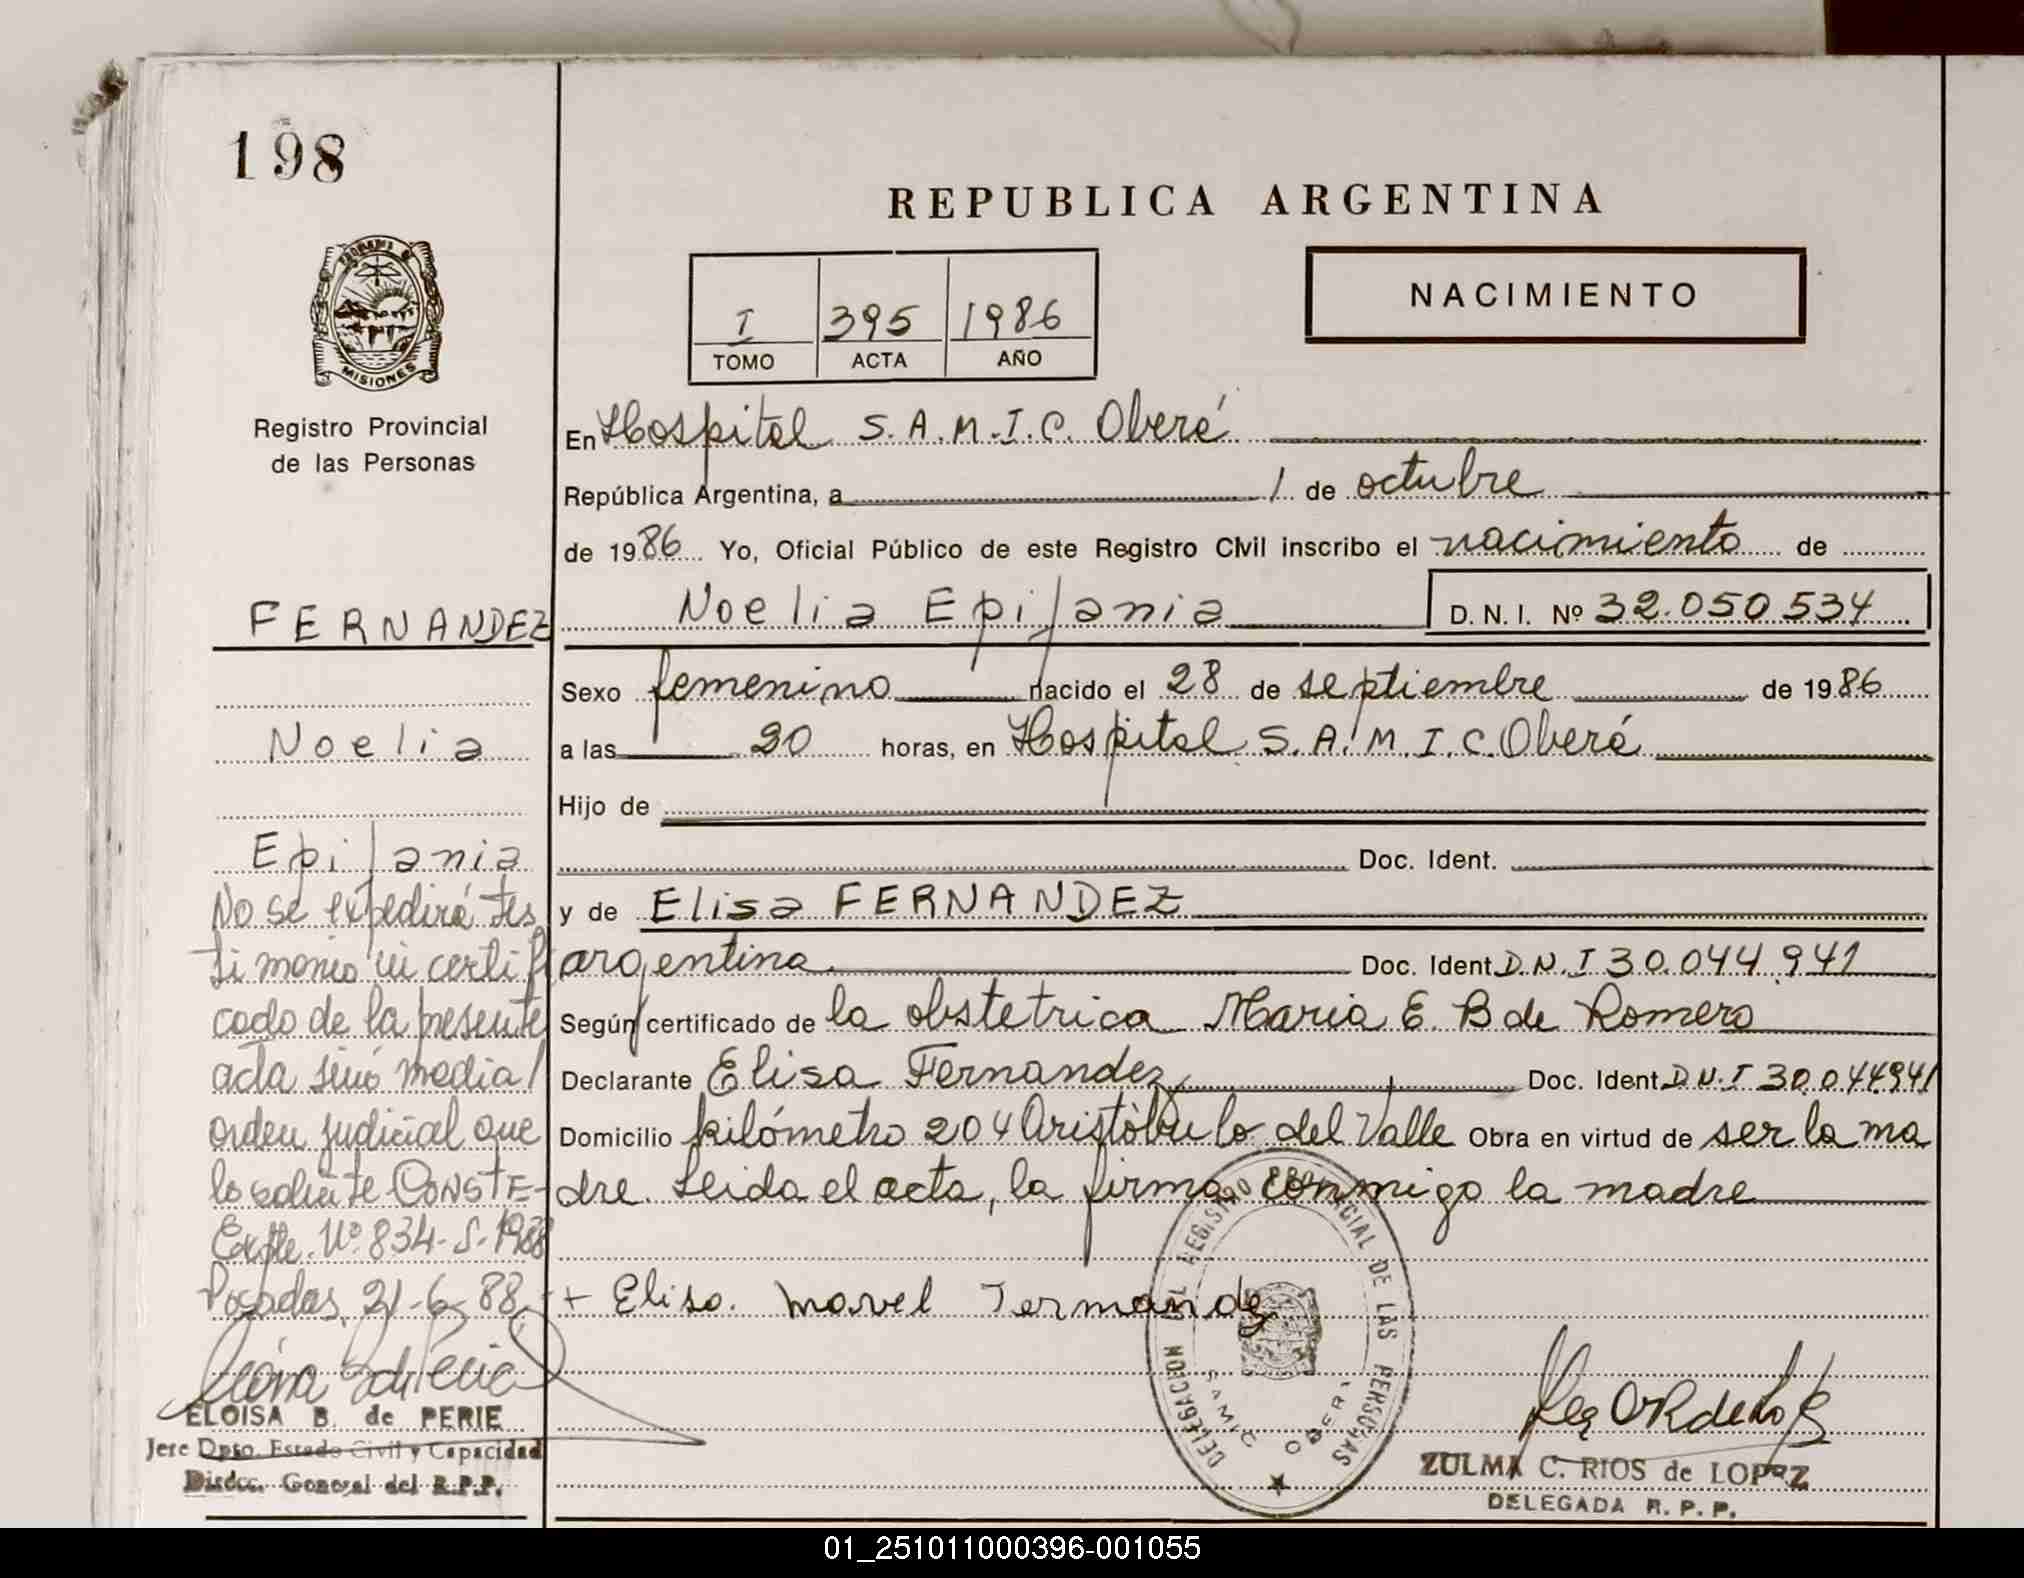 198
REPUBLICA ARGENTINA
NACIMIENTO
I 395 1986
TOMO ACTA AÑO
MISIONES
Registro Provincial
de las Personas
En Hospital S.A.M.I.C. Oberá
República Argentina, a 1 de octubre
de 1986 Yo, Oficial Público de este Registro Civil inscribo el nacimiento de
FERNANDEZ
Noelia Epifania D. N. I. Nº 32.050.534
Sexo femenino nacido el 28 de septiembre de 1986
Noelia
a las 20 horas, en Hospital S.A.M.I.C. Oberá
Hijo de
Epifania
Doc. Ident.
y de Elisa FERNANDEZ
argentina Doc. Ident D.N.I 30.044.941
Según certificado de la obstetrica Maria E. B de Romero
Declarante Elisa Fernandez Doc. Ident D.N.I 30.044941
Domicilio kilómetro 204 Aristóbulo del Valle Obra en virtud de ser la ma
dre. Leida el acta, la firma conmigo la madre
No se expedirá tes
timonio ni certifi
cado de la presente
acta sinó media/
orden judicial que
lo solicite CONSTE-
Expte. Nº 834-S-1988
Posadas, 21-6-88
+ Elisa. Marvel Fernandez
DELEGACION DEL REGISTRO PROVINCIAL DE LAS PERSONAS
SAMIC OBERA
ELOISA B. de PERIE
Jefe Dpto. Estado Civil y Capacidad
Direcc. General del R.P.P.
ZULMA C. RIOS de LOPEZ
DELEGADA R. P. P.
01_251011000396-001055